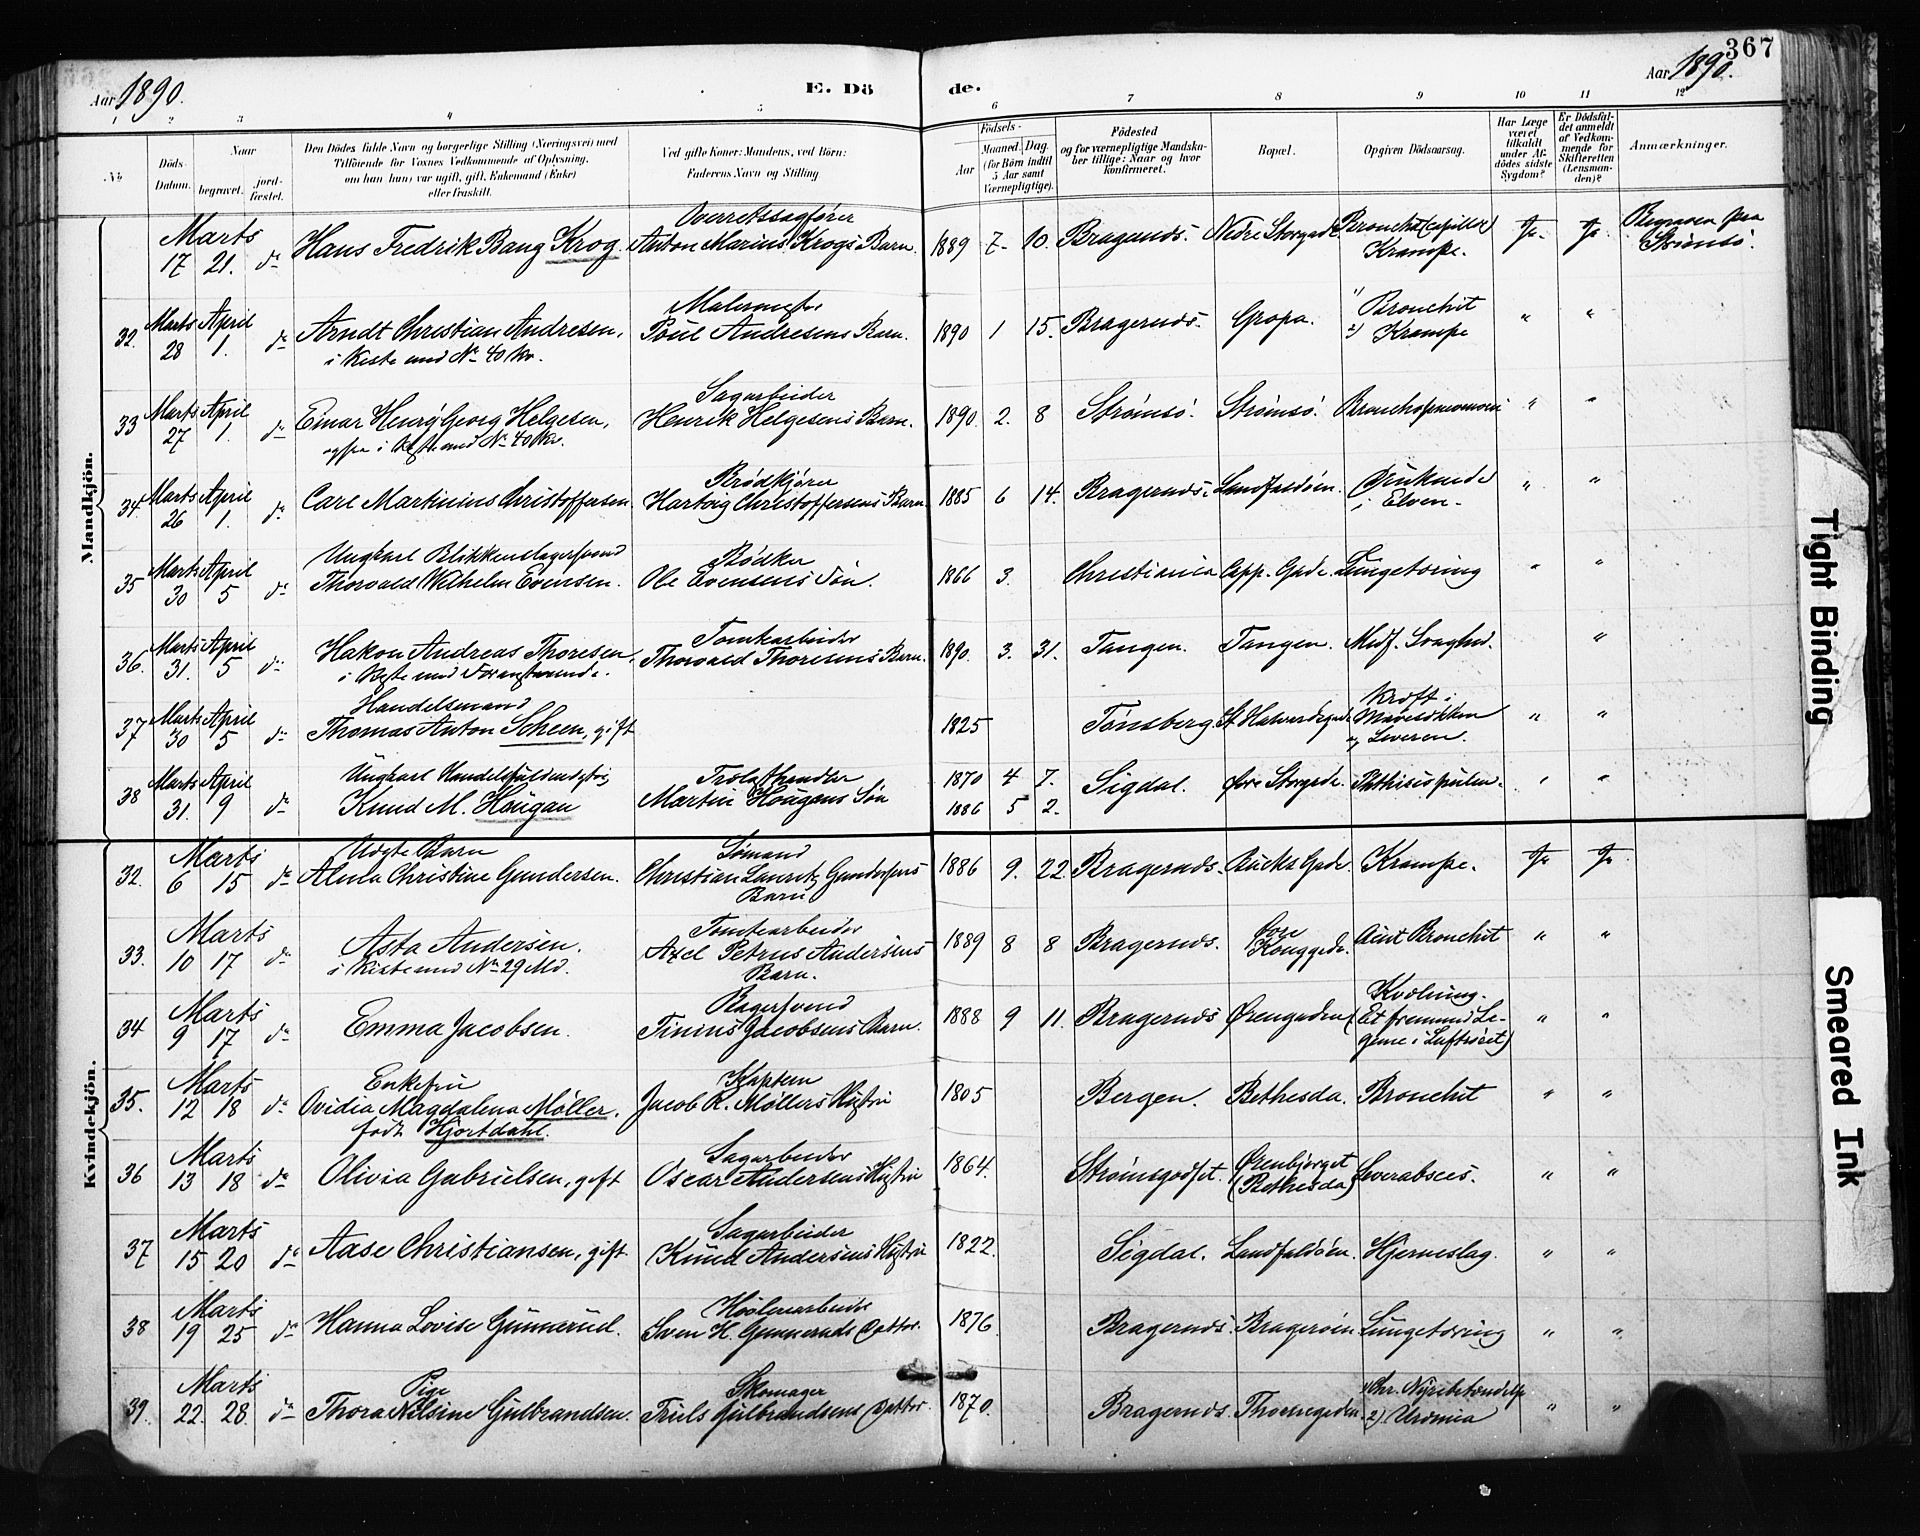 367
Aar 1890. E. Dö de. Aar 1890.
1 2 3 4 5 6 7 8 9 10 11 12
№ Döds Datum. Naar begravet. jordfæstet. Den Dödes fulde Navn og borgerlige Stilling (Næringsvei) med Tilföiende for Voxnes Vedkommende af Oplysning, om han (hun) var ugift, gift, Enkemand (Enke) eller fraskilt. Ved gifte Koner: Mandens, ved Börn: Faderens Navn og Stilling Födsels- Aar Maaned. Dag. (for Börn indtil 5 Aar samt Værnepligtige). Födested og for værnepligtige Mandskaber tillige: Naar og hvor konfirmeret. Bopæl. Opgiven Dödsaarsag. Har Læge været tilkaldt under Afdödes sidste Sygdom? Er Dödsfaldet anmeldt af Vedkommende for Skifteretten (Lensmanden)? Anmærkninger.
Mandkjön.
Marts Overretssagfører
17 21. do Hans Fredrik Bang Krog Anton Marius Krogs Barn. 1889 7 10. Bragernds. Nedre Storgade. Bronchit (capillær) Krampe. Ja. Ja. Begraven paa Strømsö.
32. Marts 28 April 1. do Arndt Christian Andresen, Malermester Poul Andresens Barn. 1890 1 15. Bragernds. Gropa. 1) Bronchit 2) Krampe " "
i Kiste med No 40 Kv.
33 Marts 27 April 1. do Einar Henry Georg Helgesen, Sagarbeider Henrik Helgesens Barn. 1890. 2. 8 Strömsö. Strömsö. Bronchopneumoni " "
ogsaa i Kiste med No 40 Kv.
34. Marts 26 April 1. do Carl Martinius Christoffersen Brödkjører Hartvig Christoffersens Barn 1885 6 14. Bragernds. Landfaldöen. Druknede i Elven. " "
35 Marts 30 April 5 do Ungkarl Blikkenslagersvend Thorvald Wilhelm Evensen. Bödker Ole Evensens Sön. 1866 3. Christiania Capp. Gade. Lungetæring " "
36. Marts 31. April 5 do Hakon Andreas Thoresen, Tomtearbeider Thorvald Thoresens Barn. 1890. 3. 31. Tangen. Tangen. Medf. Svaghed. "
i Kiste med Foranstaaende.
37 Marts 30 April 5 do Handelsmand Thomas Anton Scheen, gift 1825 Tönsberg St. Halvardsgade Kræft i Mavesækken og Leveren. " "
38 Marts 31. April 9 do Ungkarl Handelsfuldmægtig Knud M. Hougan Trælasthandler Martin Hougans Sön 1870 4 7. Sigdal. Øvre Storgade. Phthisis pulm. " "
1886 5 2.
Kvindekjön.
32. Marts 6 15 do Uægte Barn Alma Christine Gundersen. Sømand Christian Lauritz Gundersens Barn 1886 9. 22. Bragernds. Bucks Gade. Krampe. Ja Ja
33. Marts 10 17 do Asta Andersen. Tomtearbeider Axel Petrus Andersens Barn. 1889 8 8 Bragernds. Øvre Konggade. Acut Bronchit " "
i Kiste med No 29 Md.
34 Marts 9 17 do Emma Jacobsen. Bagersvend Tinius Jacobsens Barn. 1888 9 11. Bragernds Ørengaden Kvælning. (Et fremmed Legeme i Luftröret) " "
35. Marts 12 18 do Enkefru Ovidia Magdalena Møller, født Hjortdahl. Kaptein Jacob R. Møllers Hustru 1805 Bergen. Bethesda. Bronchit " "
36 Marts 13 18 do Olivia Gabrielsen, gift Sagarbeider Oscar Andersens Hustru 1864. Strömsgodset. Ørenbjerget (Bethesda) Leverabsces. " "
37 Marts 15 20 do Aase Christiansen, gift Sagarbeider Knud Andersens Hustru 1822. Sigdal. Landfaldöen. Hjerneslag. " "
38 Marts 19 25 do Hanna Lovise Gunnerud. Høvleriarbeider Sven H. Gunneruds Datter. 1876. Bragernds. Bragerøen. Lungetæring " "
39. Marts 22. 28. do Pige Thora Nilsine Gulbrandsen. Skomager Truels Gulbrandsens Datter. 1870. Bragernds. Thornegaden. 1) Chr. Nyrebetændelse 2) Uræmia " "
Tight Binding
Smeared Ink